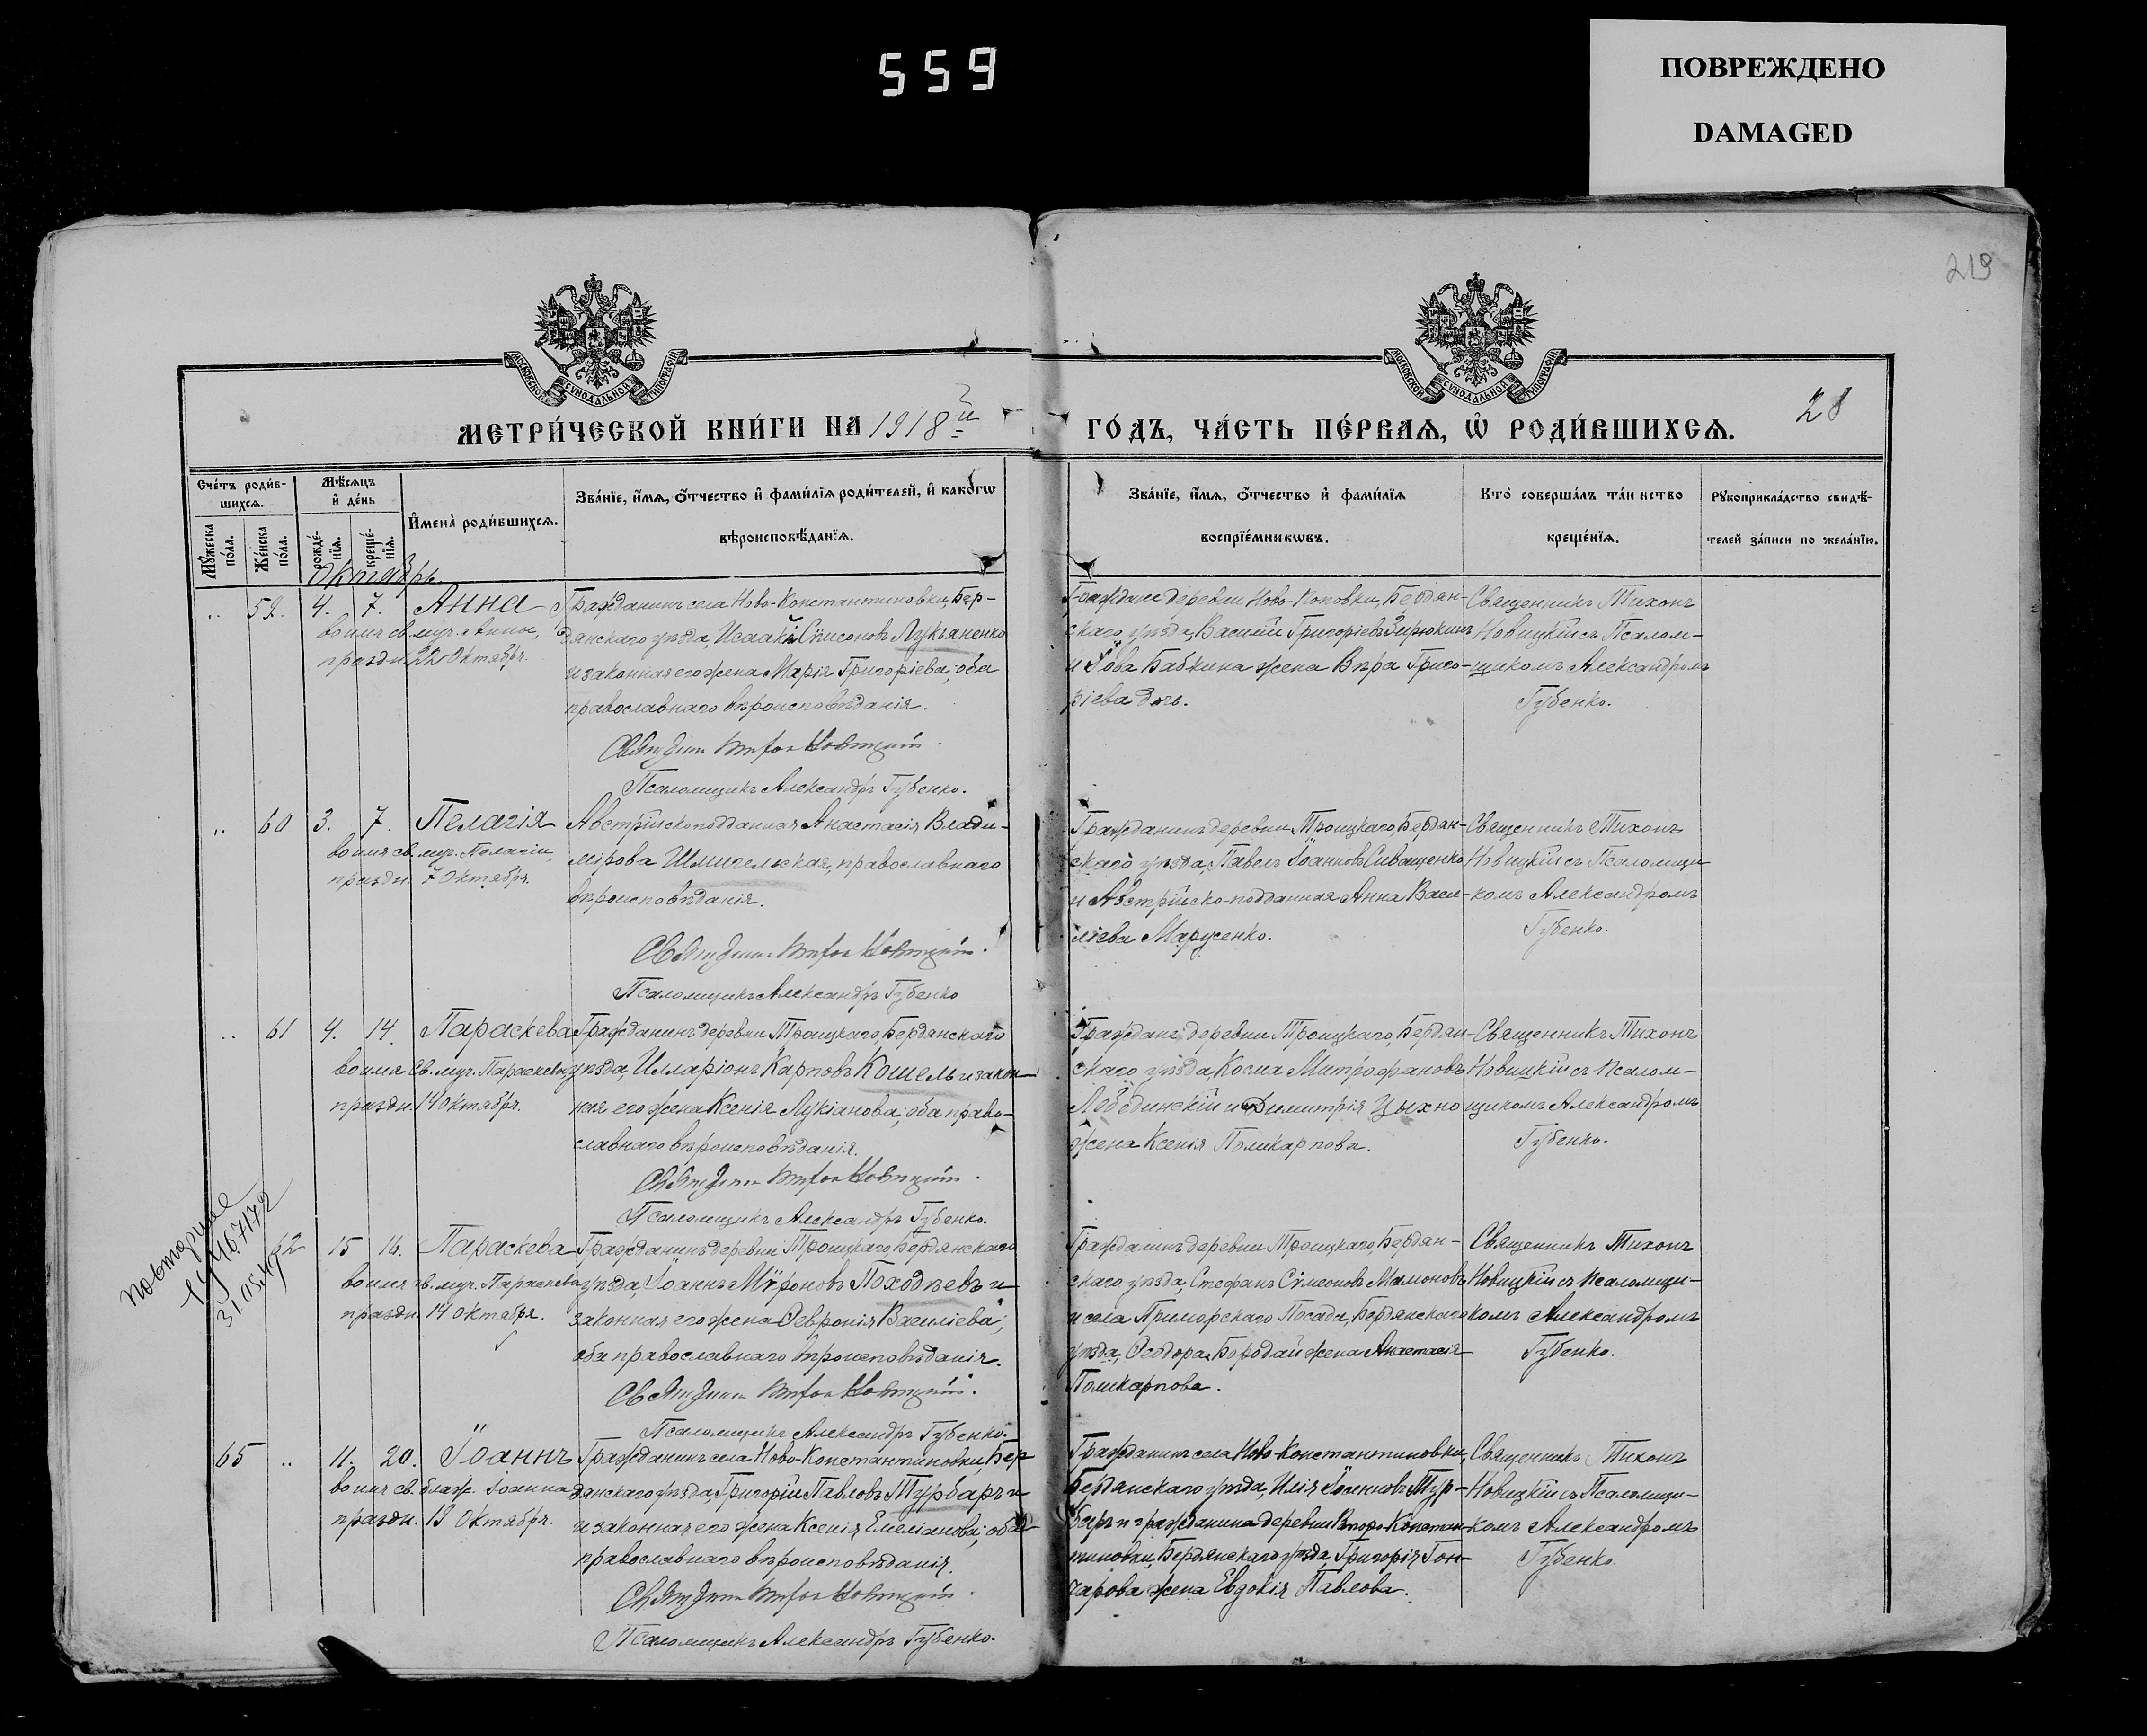 559
ПОВРЕЖДЕНО
DAMAGED
219
МОСКОВСКОЙ СУНОДАЛЬНОЙ ТИПОГРАФІИ
МОСКОВСКОЙ СУНОДАЛЬНОЙ ТИПОГРАФІИ
МЕТРИ́ЧЕСКОЙ КНИ́ГИ НА 1918й
ГО́ДЪ, ЧА́СТЬ ПЕ́РВАѦ, Ѡ҆ РОДИ́ВШИХСѦ.
28
Сче́тъ роди́вшихсѧ.
Мꙋ́жеска по́ла.
Же́нска по́ла.
Мѣ́сѧцъ и҆ де́нь
рожде́нїѧ.
креще́нїѧ.
И҆мена̀ роди́вшихсѧ.
Зва́нїе, и҆́мѧ, ѻ҆́тчество и҆ фами́лїѧ роди́телей, и҆ како́гѡ
вѣроисповѣ́данїѧ.
Зва́нїе, и҆́мѧ, ѻ҆́тчество и҆ фами́лїѧ
воспрїе́мникѡвъ.
Кто̀ соверша́лъ та́инство
креще́нїѧ.
Рꙋкоприкла́дство свидѣ́-
телей за́писи по жела́нїю.
Октябрь.
" 59. 4. 7. Анна
во имя св. муч. Анны,
праздн. 22 Октября.
Гражданинъ села Ново-Константиновки, Бер-
дянскаго уѣзда, Исаакій Лукьяненко
и законная его жена Марія Григоріева; оба
православнаго вѣроисповѣданія.
Священникъ Тихонъ Новицкій.
Псаломщикъ Александръ Губенко.
Граждане деревни Ново-Поповки, Бердян-
скаго уѣзда, Василій Григоріевъ Бирюкинъ
и Бабкина жена Вѣра Григо-
ріева дочь.
Священникъ Тихонъ
Новицкій съ Псалом-
щикомъ Александромъ
Губенко.
" 60 3. 7. Пелагія
во имя св. муч. Пелагіи,
праздн. 7 Октября.
Австрійскоподданная Анастасія Влади-
мірова Шмигельская, православнаго
вѣроисповѣданія.
Священникъ Тихонъ Новицкій.
Псаломщикъ Александръ Губенко
Гражданинъ деревни Троицкаго, Бердян-
скаго уѣзда, Павелъ Іоанновъ Сиващенко
и Австрійско-подданная Анна Васи-
ліева Марусенко.
Священникъ Тихонъ
Новицкій съ Псаломщи-
комъ Александромъ
Губенко.
" 61 4. 14. Параскева
во имя св. муч. Параскевы,
праздн. 14 Октября.
Гражданинъ деревни Троицкаго, Бердянскаго
уѣзда, Илларіонъ Карповъ Кошель и закон-
ная его жена Ксенія Лукіанова; оба право-
славнаго вѣроисповѣданія.
Священникъ Тихонъ Новицкій.
Псаломщикъ Александръ Губенко.
Граждане деревни Троицкаго, Бердян-
скаго уѣзда, Косма Митрофановъ
Лободинскій и Димитрія Цыхно
жена Ксенія Поликарпова.
Священникъ Тихонъ
Новицкій съ Псалом-
щикомъ Александромъ
Губенко.
повторное
62 15 16. Параскева
во имя св. муч. Параскевы
праздн. 14 Октября.
Гражданинъ деревни Троицкаго, Бердянскаго
уѣзда, Іоаннъ Мѵроновъ Походѣевъ и
законная его жена Февронія Василіева;
оба православнаго вѣроисповѣданія.
Священникъ Тихонъ Новицкій.
Псаломщикъ Александръ Губенко.
Гражданинъ деревни Троицкаго, Бердян-
скаго уѣзда, Стефанъ Сѵмеоновъ Мамоновъ
и села Приморскаго Посада, Бердянскаго
уѣзда, Ѳеодора Бородай жена Анастасія
Поликарпова.
Священникъ Тихонъ
Новицкій съ Псаломщи-
комъ Александромъ
Губенко.
65 " 11. 20. Іоаннъ
во имя св. блаж. Іоанна
праздн. Октября.
Гражданинъ села Ново-Константиновки, Бер-
дянскаго уѣзда, Григорій Павловъ Турбаръ и
и законная его жена Ксенія Емеліанова; оба
православнаго вѣроисповѣданія.
Священникъ Тихонъ Новицкій.
Псаломщикъ Александръ Губенко.
Гражданинъ села Ново-Константиновки,
Бердянскаго уѣзда, Илія Іоанновъ Тур-
баръ и гражданина деревни Второ-Констан-
тиновки, Бердянскаго уѣзда, Григорія Гон-
чарова жена Евдокія Павлова.
Священникъ Тихонъ
Новицкій съ Псаломщи-
комъ Александромъ
Губенко.